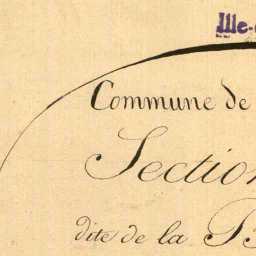 Ille-
Commune de
Section
dite de la